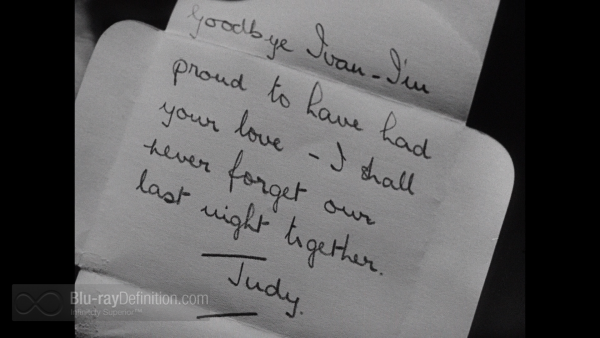 Goodbye Ivan - I'm
proud to have had
your love - I shall
never forget our
last night together.
Judy.
Blu-rayDefinition.com
Infinitely Superior™